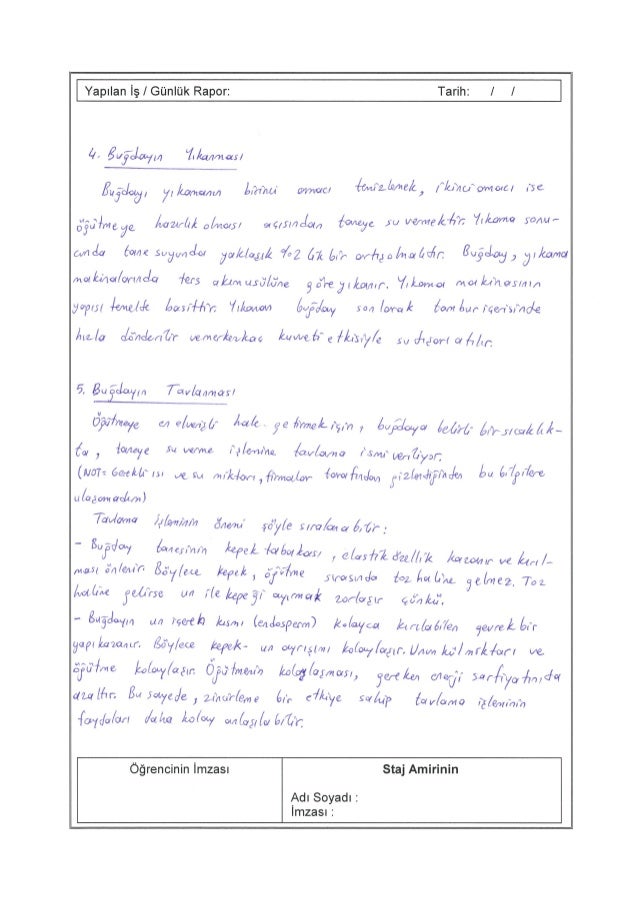 Yapılan İş / Günlük Rapor: Tarih: / /
4. Buğdayın Yıkanması
Buğdayı yıkamanın birinci amacı temizlemek, ikinci amacı ise
öğütmeye hazırlık olması açısından taneye su vermektir. Yıkama sonu-
cunda tane suyunda yaklaşık %2 lik bir artış olmalıdır. Buğday, yıkama
makinalarında ters akım usülüne göre yıkanır. Yıkama makinasının
yapısı temelde basittir. Yıkanan buğday son olarak tambur içerisinde
hızla döndürülür ve merkezkaç kuvveti etkisiyle su dışarı atılır.
5. Buğdayın Tavlanması
Öğütmeye en elverişli hale getirmek için, buğdaya belirli bir sıcaklık-
ta, taneye su verme işlenine tavlama ismi veriliyor.
(NOT: Gerekli ısı ve su miktarı, firmalar tarafından gizlendiğinden bu bilgilere
ulaşamadım)
Tavlama işleminin önemi şöyle sıralanabilir:
- Buğday tanesinin kepek tabakası, elastik özellik kazanır ve kırıl-
ması önlenir. Böylece kepek, öğütme sırasında toz haline gelmez. Toz
haline gelirse un ile kepeği ayırmak zorlaşır çünkü.
- Buğdayın un içerek kısmı (endosperm) kolayca kırılabilen gevrek bir
yapı kazanır. Böylece kepek- un ayrışımı kolaylaşır. Unun kül miktarı ve
öğütme kolaylaşır. Öğütmenin kolaylaşması, gereken enerji sarfiyatınıda
azaltır. Bu sayede, zincirleme bir etkiye sahip tavlama işleminin
faydaları daha kolay anlaşılabilir.
Öğrencinin İmzası Staj Amirinin
Adı Soyadı :
İmzası :